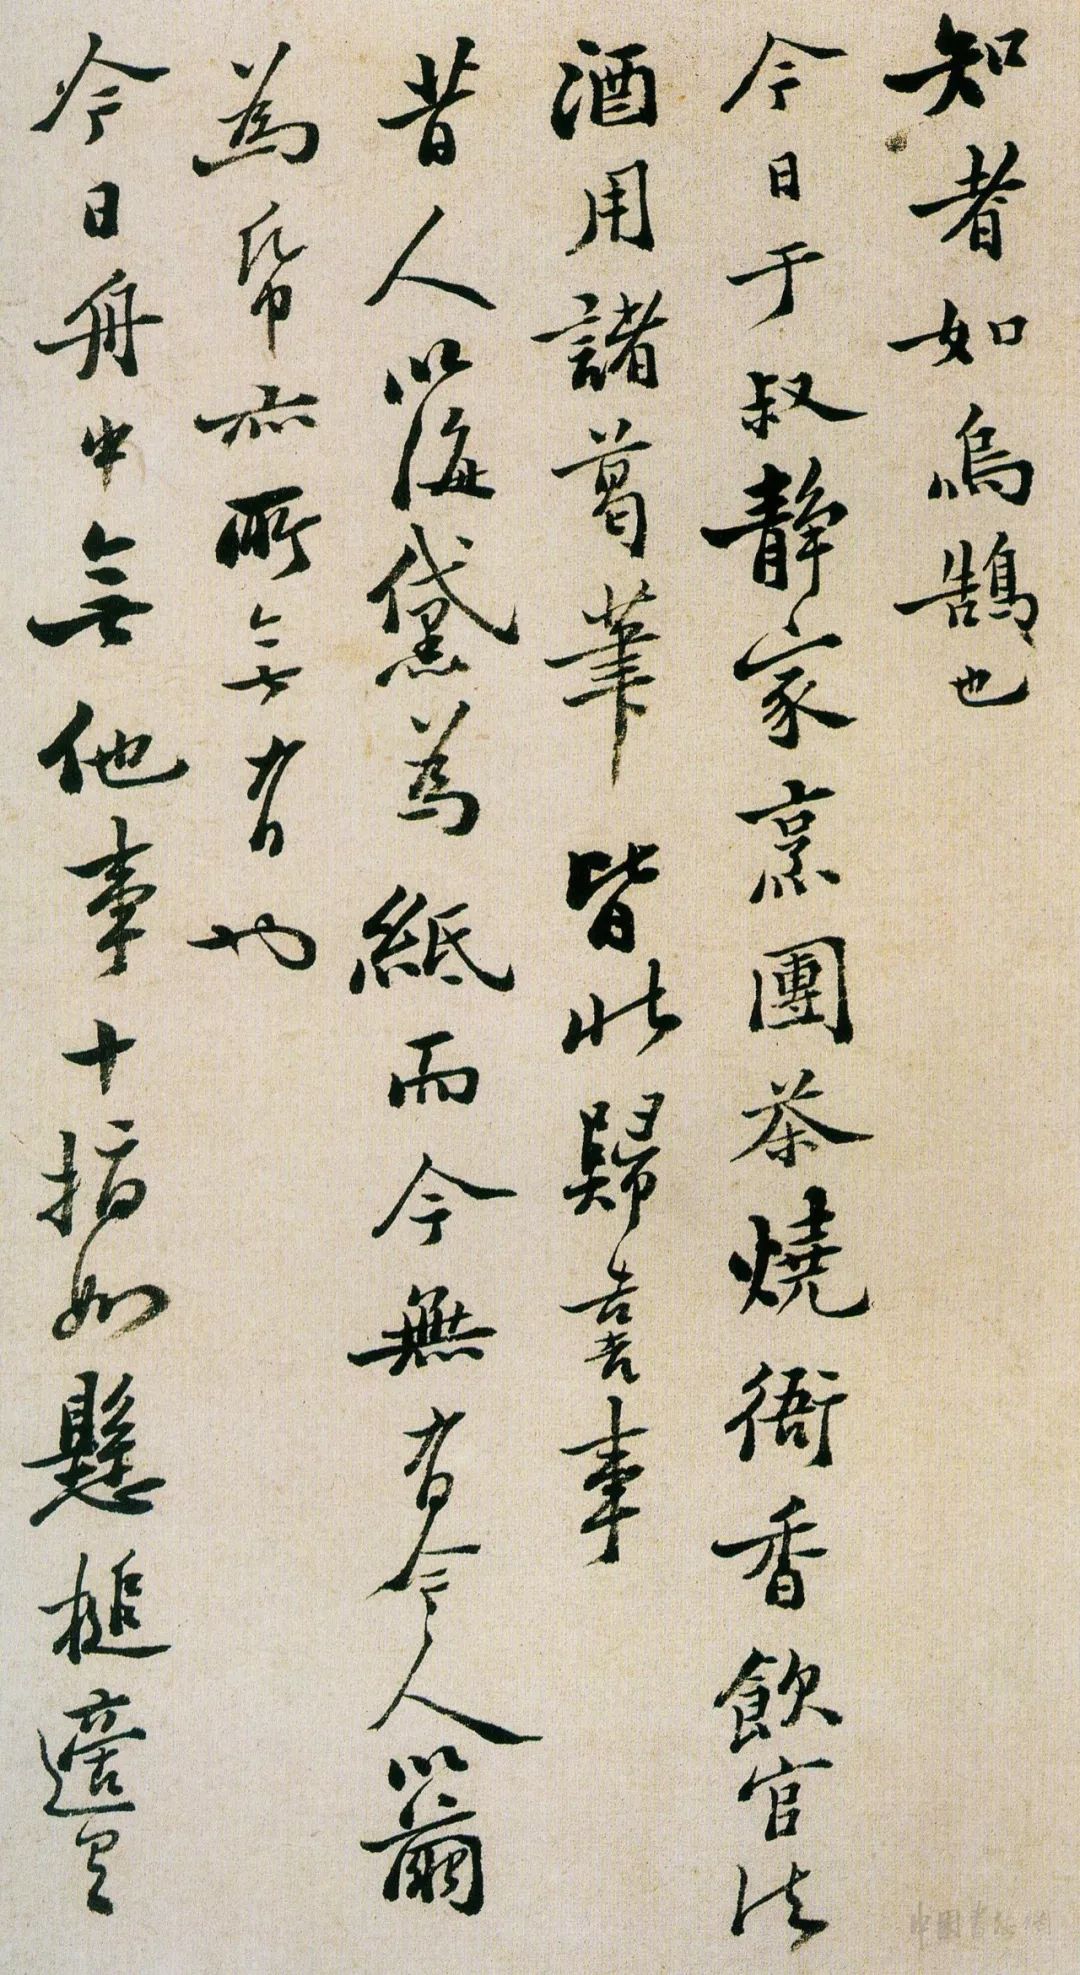 知者如烏鵲也
今日于叔靜家烹團茶燒衙香飲官法
酒用諸葛筆皆此歸喜事
昔人以海苔為紙而今無有今人以
為亦所無有也
今日舟中無他事十指如懸槌適